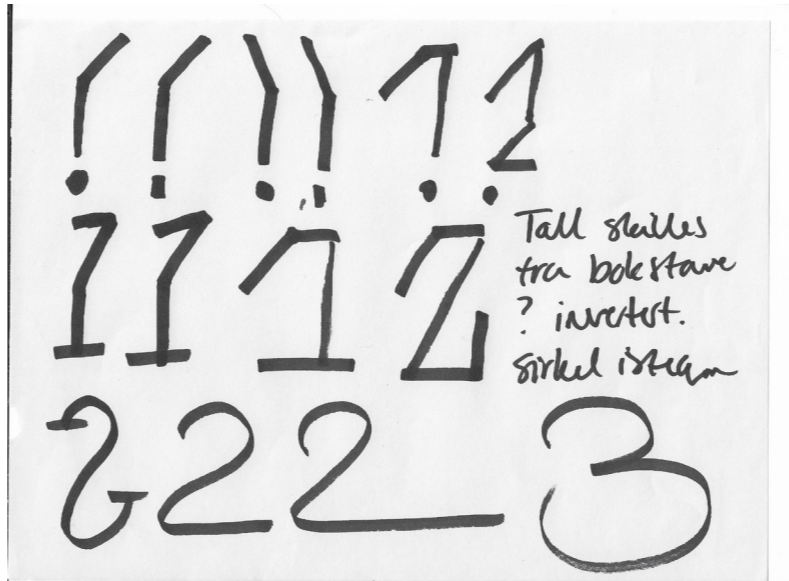 ! ! ! ! 1 2
1 1 1 2
Tall skilles
fra bokstave
? invertert.
sirkel
2 2 2 3